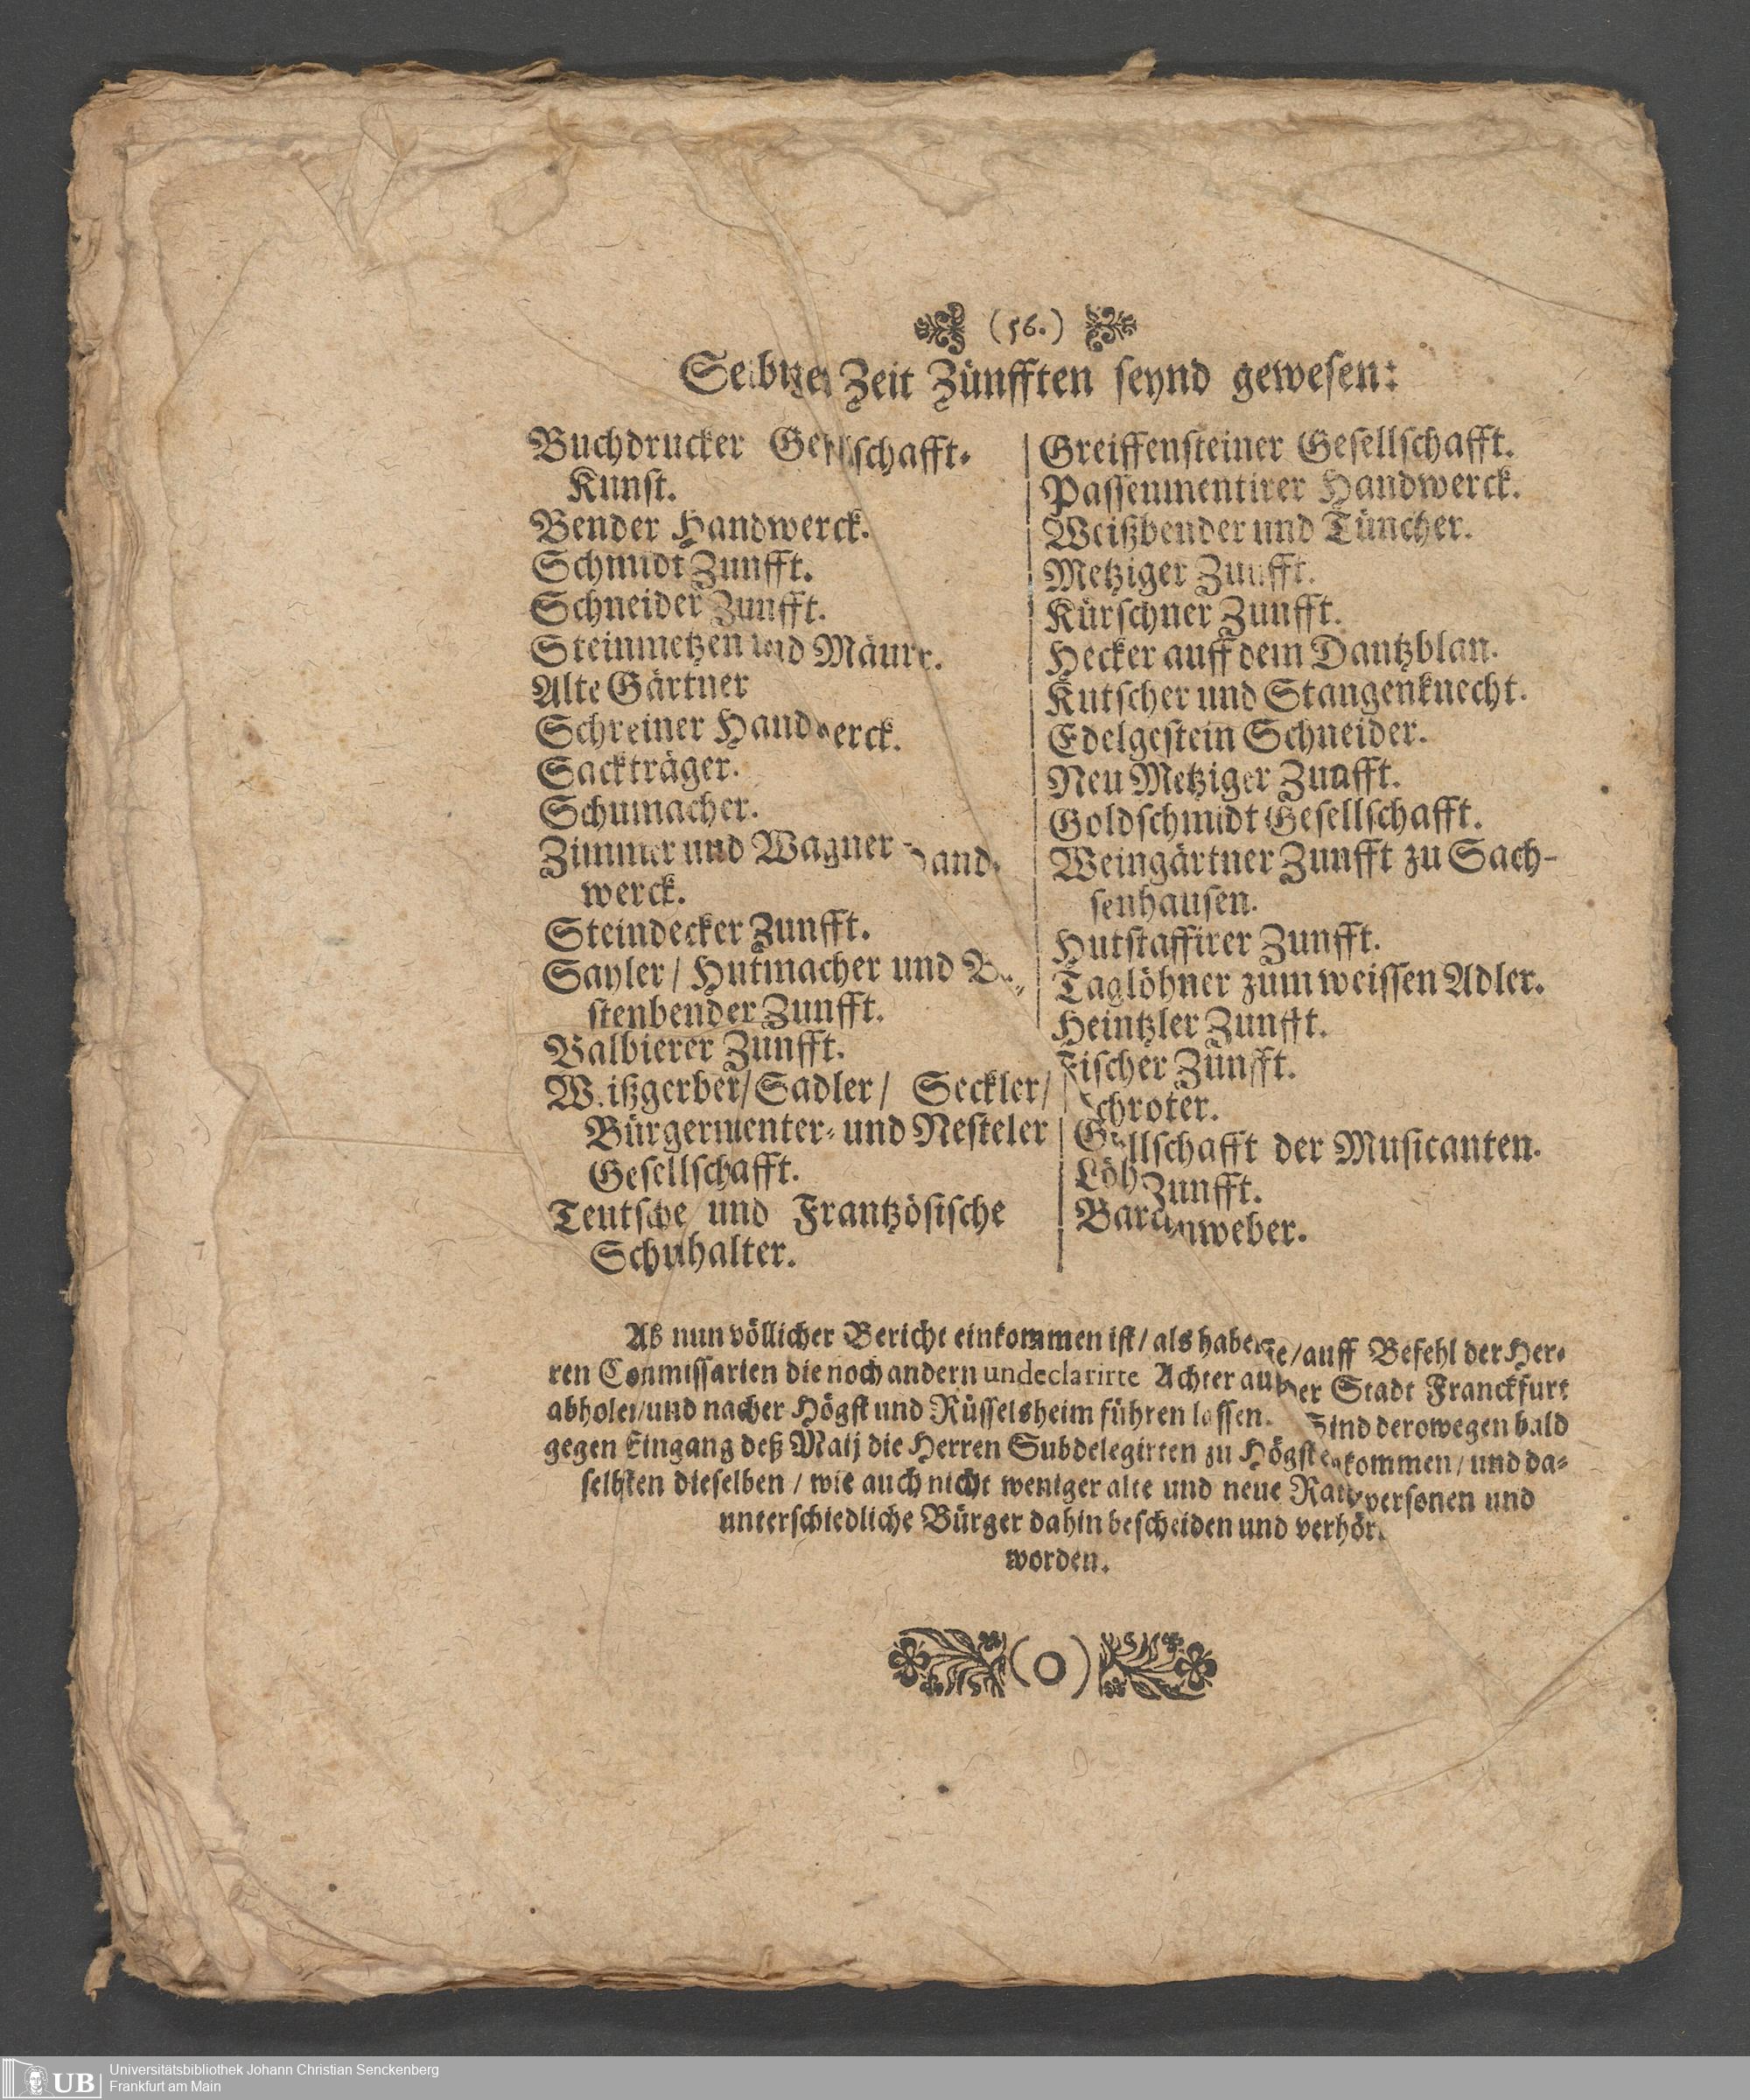 (56.)
Selbiger Zeit Zünfften seynd gewesen:
Buchdrucker Gesellschafft-
Kunst.
Bender Handwerck.
Schmidt Zunfft.
Schneider Zunfft.
Steinmetzen und Mäurer.
Alte Gärtner
Schreiner Handwerck.
Sackträger.
Schumacher.
Zimmer und Wagner Hand-
werck.
Steindecker Zunfft.
Sayler / Hutmacher und
stenbender Zunfft.
Balbierer Zunfft.
Weißgerber/ Sadler / Seckler/
Bürgermenter- und Nesteler
Gesellschafft.
Teutsche und Frantzösische
Schuhalter.
Greiffensteiner Gesellschafft.
Passenmentirer Handwerck.
Weißbender und Tüncher.
Metziger Zunfft.
Kürschner Zunfft.
Hecker auff dem Dantzblan.
Kutscher und Stangenknecht.
Edelgestein Schneider.
Neu Metziger Zunfft.
Goldschmidt Gesellschafft.
Weingärtner Zunfft zu Sach-
senhausen.
Hutstaffirer Zunfft.
Taglöhner zum weissen Adler.
Heintzler Zunfft.
Fischer Zunfft.
Schroter.
Gesellschafft der Musicanten.
Löh Zunfft.
Barchenweber.
Als nun völlicher Bericht einkommen ist / als haben sie / auff Befehl der Her-
ren Commissarien die noch andern undeclarirte Achter auß der Stadt Franckfurt
abholen/und nacher Högst und Rüsselsheim führen lassen. Sind derowegen bald
gegen Eingang deß Maij die Herren Subdelegirten zu Högst ankommen / und da-
selbsten dieselben / wie auch nicht weniger alte und neue Rathspersonen und
unterschiedliche Bürger dahin bescheiden und verhört
worden.
(O)
UB
Universitätsbibliothek Johann Christian Senckenberg
Frankfurt am Main